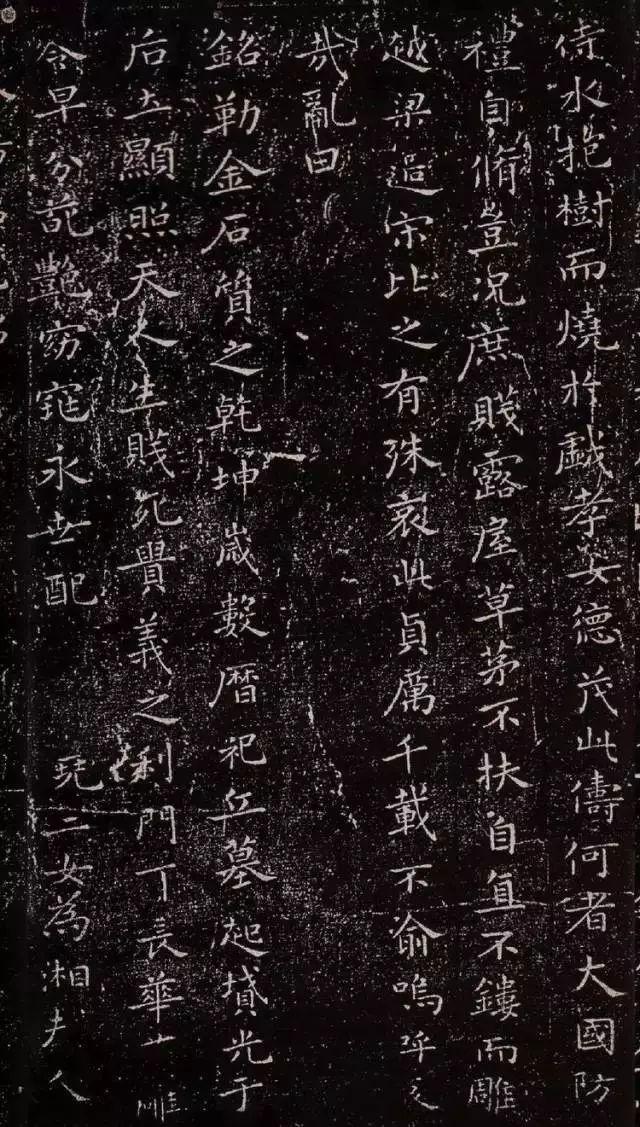 侍水抱樹而燒於戯孝女德茂此儔何者大國防
禮自脩豈况庶賤露屋草茅不扶自直不鏤而雕
越梁過宋比之有殊哀此貞厲千載不俞嗚呼
哉亂曰
銘勒金石質之乾坤歲數曆祀丘墓起墳光于
后土顯照天人生賤死貴義之利門長華雕
令早分葩艷窈窕永世配 堯二女為湘夫人